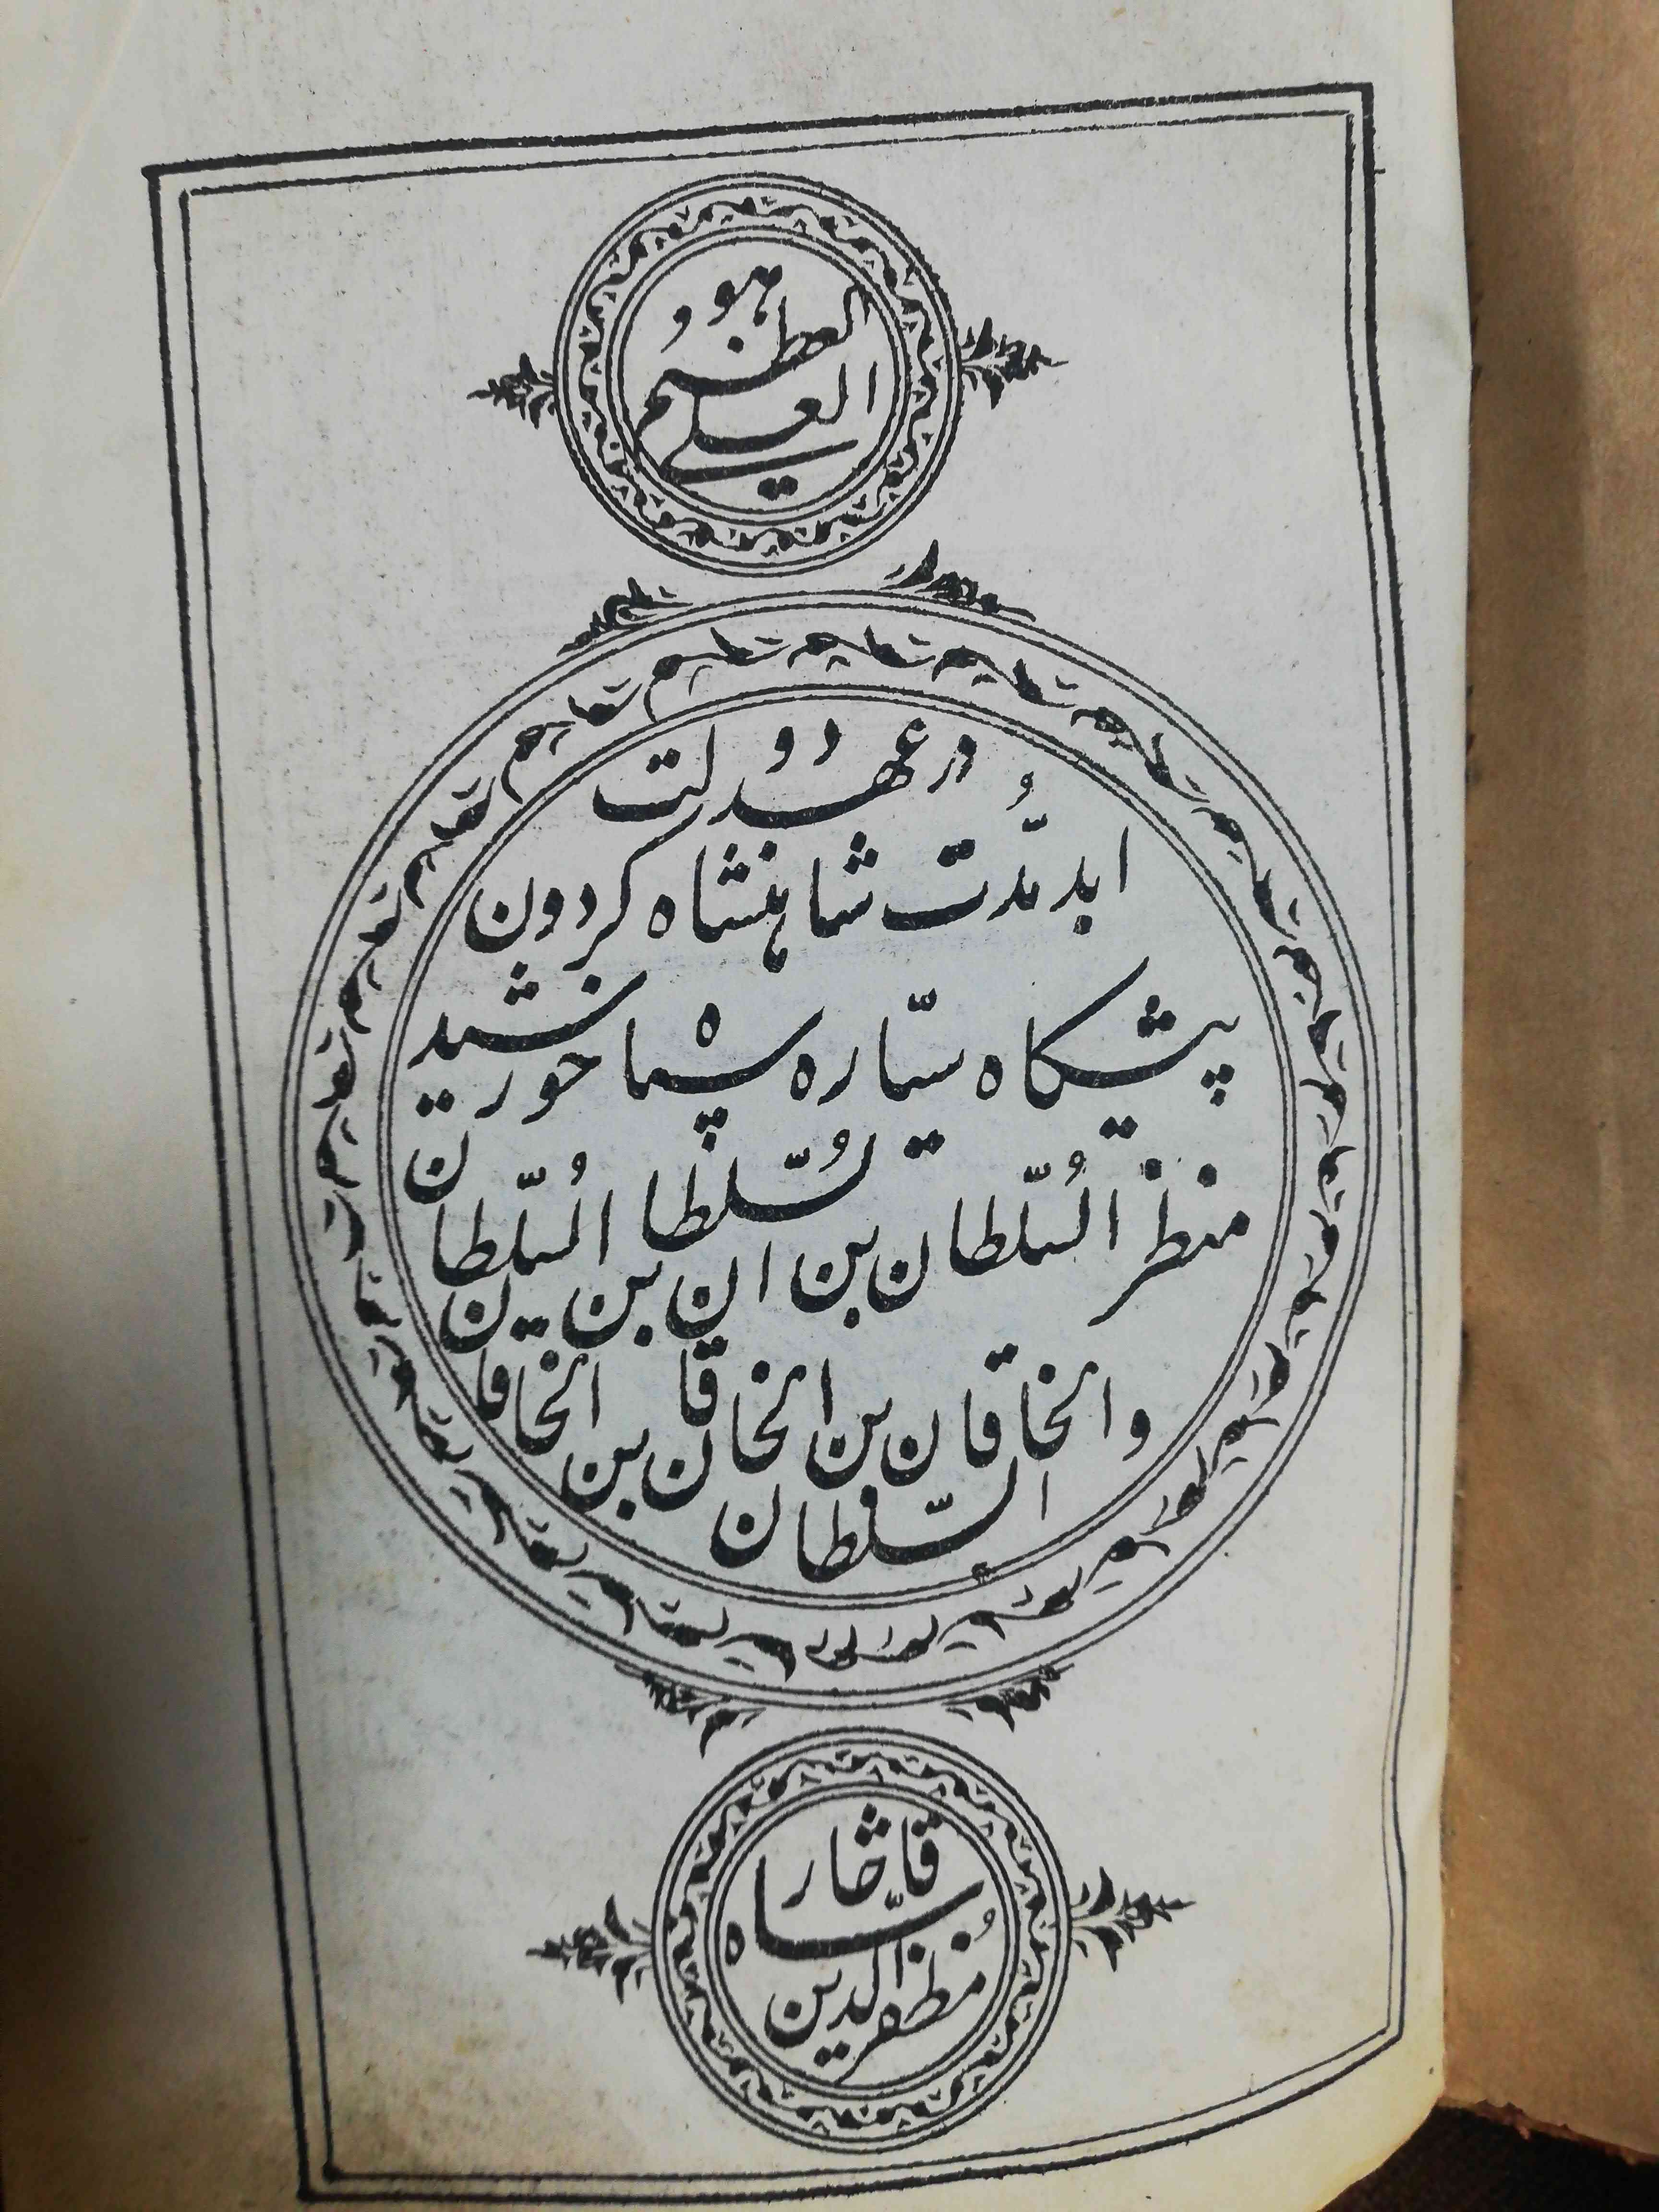 هو
العلی و العظیم
در عهد دولت
ابد مدّت شاهنشاه کردون
پیشکاه سیّاره سپاه خورشید
منظر السّلطان بن السُّلطان بن السُّلطان
والخاقان بن الخاقان بن الخاقان
السّلطان
مظفرالدین
شاه
قاجار